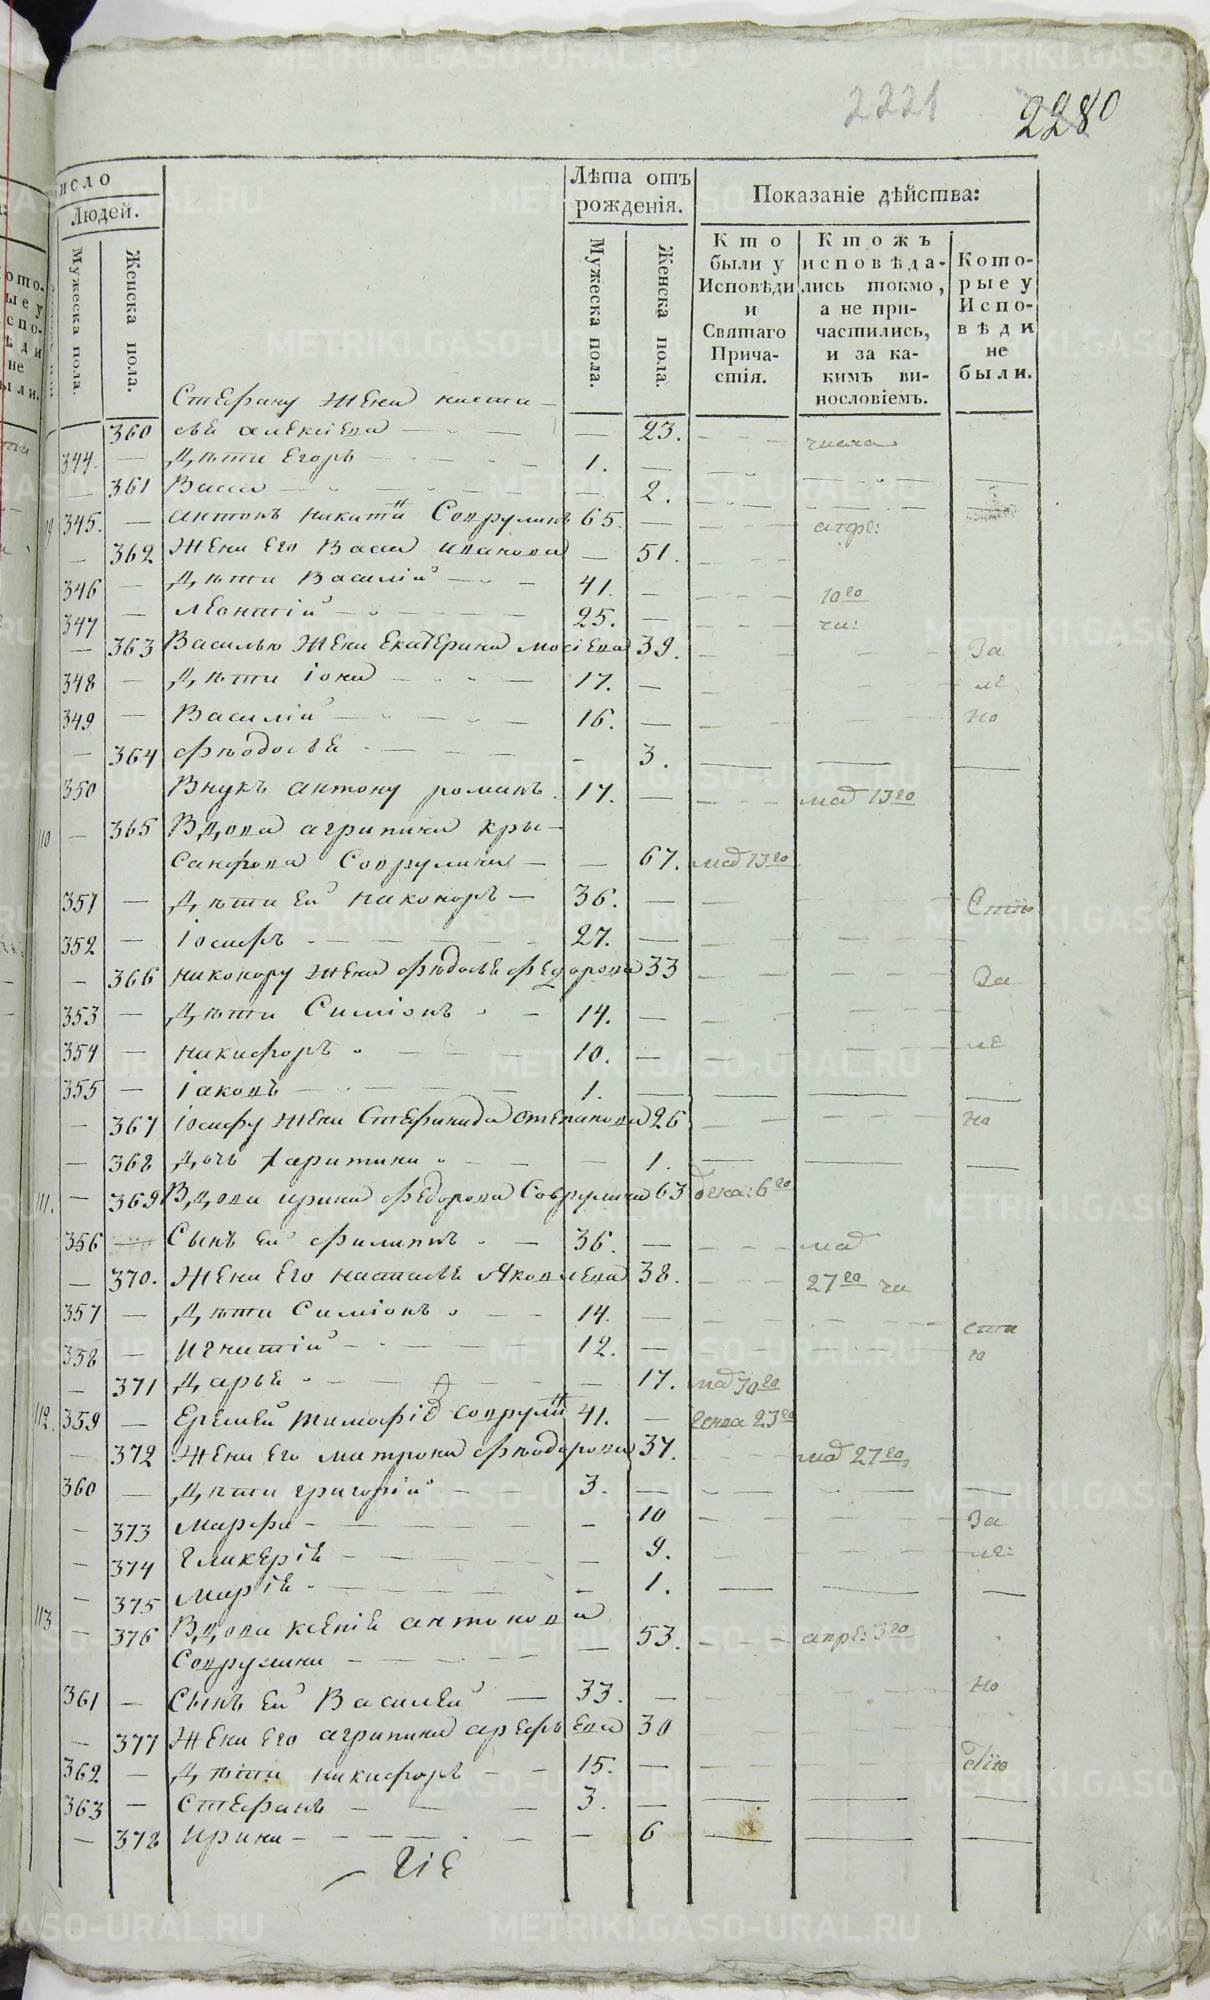 2221
2280
исло
Лѣта отъ рожденія.
Показаніе дѣйства:
Людей.
Мужеска пола.
Женска пола.
Мужеска пола.
Женска пола.
Кто были у Исповѣди и Святаго Причастія.
Ктожъ исповѣдались токмо, а не причастились, и за какимъ винословіемъ.
Которые у Исповѣди не были.
Стефану жена наста-
360 сья алексіева — 23.
344. — Дѣти Егоръ 1. —
— 361 Васса — 2.
345. — антонъ никитинъ Соврулинъ 65. — апре:
— 362 Жена Его Васса иванова — 51.
346 — Дѣти Василій 41. — 10го
347 — леонтій 25. — чи:
— 363 Василью Жена Екатерина мосіева 39. За
348 — Дѣти іона 17. — ле
349 — Василій 16. — но
— 364 Фѣодосья — 3.
350 Внукъ антону романъ 17. — мая 13го
110 — 365 Вдова агрипина кры-
санфова Соврулина — 67. мая 13го
351 — Дѣти Ей никоноръ 36. —
352 — іосифъ 27. —
— 366 никонору Жена Фѣдосья Федорова 33 За
353 — Дѣти Симіонъ 14. —
354 — никифоръ 10. — ле
355 — іаковъ 1. —
— 367 іосифу Жена Стефанида степанова 26 но
— 368 Дочь харитина — 1.
111. — 369 Вдова ирина Федорова Соврулина 63 дека: 6го
356 — Сынъ Ей Филиппъ 36. — мая
— 370. Жена Его настасья Яковлева 38. 27го чи
357 — Дѣти Симіонъ 14. —
358 — игнатій 12. —
— 371 Дарья — 17. мая 30го
112. 359 — Еремей тимофіев соврулинъ 41. — генва 23го
— 372 Жена Его матрона Фѣодорова 37. мая 27го
360 — Дѣти григорій 3. —
— 373 Марфа — 10 За
— 374 гликерія — 9. ле:
— 375 Марія — 1.
113 — 376 Вдова ксенія антонова
Соврулина — 53. апре: 3го
361 — Сынъ Ей Василей 33. — но
— 377 Жена Его агрипина арефьева 30
362 — Дѣти никифоръ 15. —
363 — стефанъ 3. —
— 378 ирина — 6